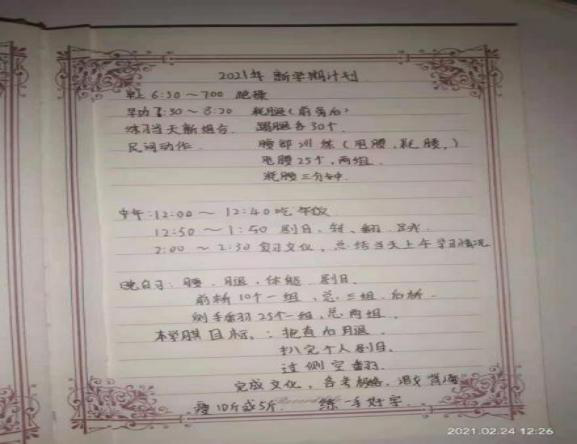 2021年 新学期计划
早上 6:30～7:00 跑操
早功 7:30～8:20 耗腿(前旁后)
练习当天新组合 踢腿各30个
民间动作 腰部训练(甩腰,耗腰,)
甩腰25个,两组
耗腰三分钟
中午:12:00～12:40吃午饭
12:50～1:50 剧目、
2:00～2:30 复习文化,总结当天上午学习情况
晚自习: 腰、腿、体能、剧目
前桥10个一组,总三组 后桥
侧手翻25个一组,总两组
本学期目标:
个人剧目.
过侧空翻
完成文化,
瘦10斤或5斤. 练一手好字
2021.02.24 12:26